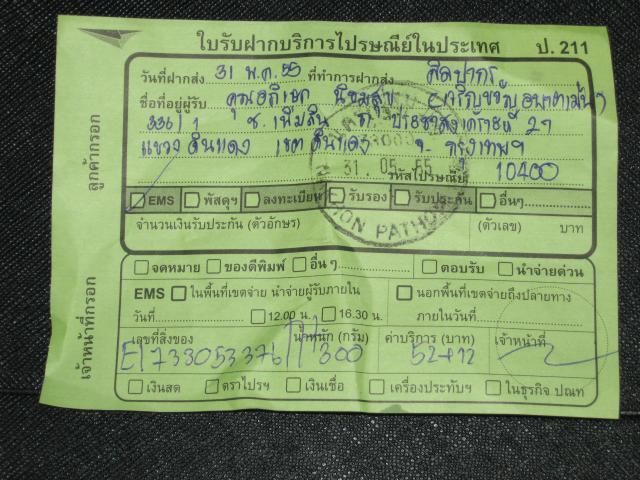 ใบรับฝากบริการไปรษณีย์ในประเทศ ป. 211
วันที่ฝากส่ง 31 พ.ค. 55 ที่ทำการฝากส่ง ศิลปากร
ชื่อที่อยู่ผู้รับ คุณอภิเษก นิยมสุข
336/1 ซ. เพิ่มสิน ถ. ประชาสงเคราะห์ 29
แขวง ดินแดง เขต ดินแดง จ. กรุงเทพฯ
31. 05. 55
รหัสไปรษณีย์ 10400
ลูกค้ากรอก
EMS พัสดุฯ ลงทะเบียน รับรอง รับประกัน อื่นๆ
ION PATHOM
จำนวนเงินรับประกัน (ตัวอักษร) (ตัวเลข) บาท
จดหมาย ของตีพิมพ์ อื่น ๆ ตอบรับ นำจ่ายด่วน
EMS ในพื้นที่เขตจ่าย นำจ่ายผู้รับภายใน นอกพื้นที่เขตจ่ายถึงปลายทาง
วันที่ 12.00 น. 16.30 น. ภายในวันที่
เจ้าหน้าที่กรอก
เลขที่สิ่งของ น้ำหนัก (กรัม) ค่าบริการ (บาท) เจ้าหน้าที่
EI733053376TH 300 52+12
เงินสด ตราไปรฯ เงินเชื่อ เครื่องประทับฯ ในธุรกิจ ปณท